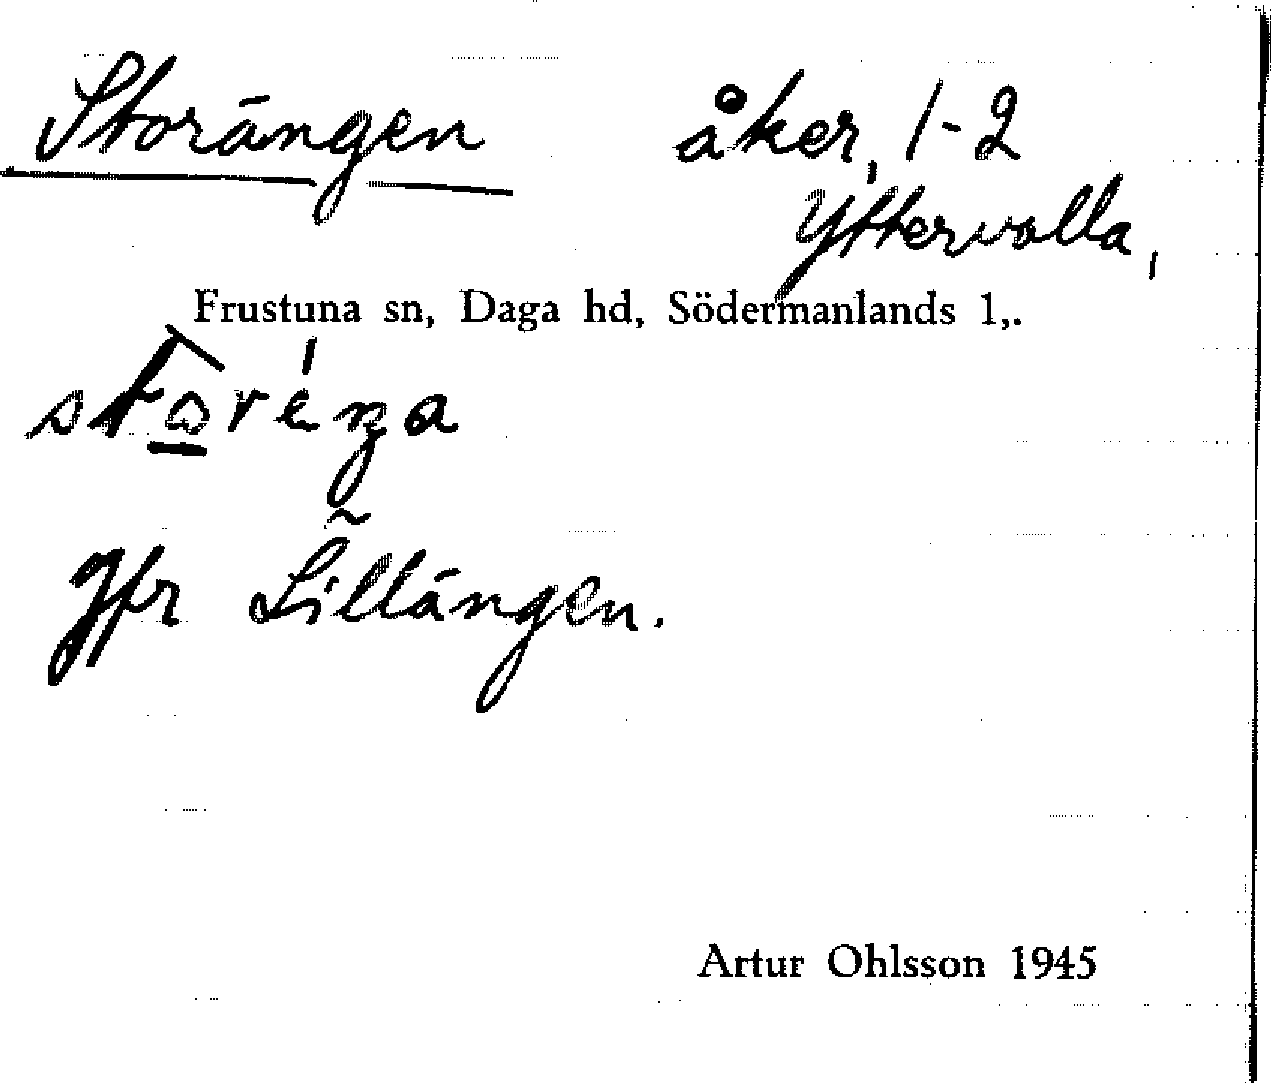 Storängen åker, 1-2
Yttervalla,
Frustuna sn, Daga hd, Södermanlands l,.
Jfr Lillängen.
Artur Ohlsson 1945